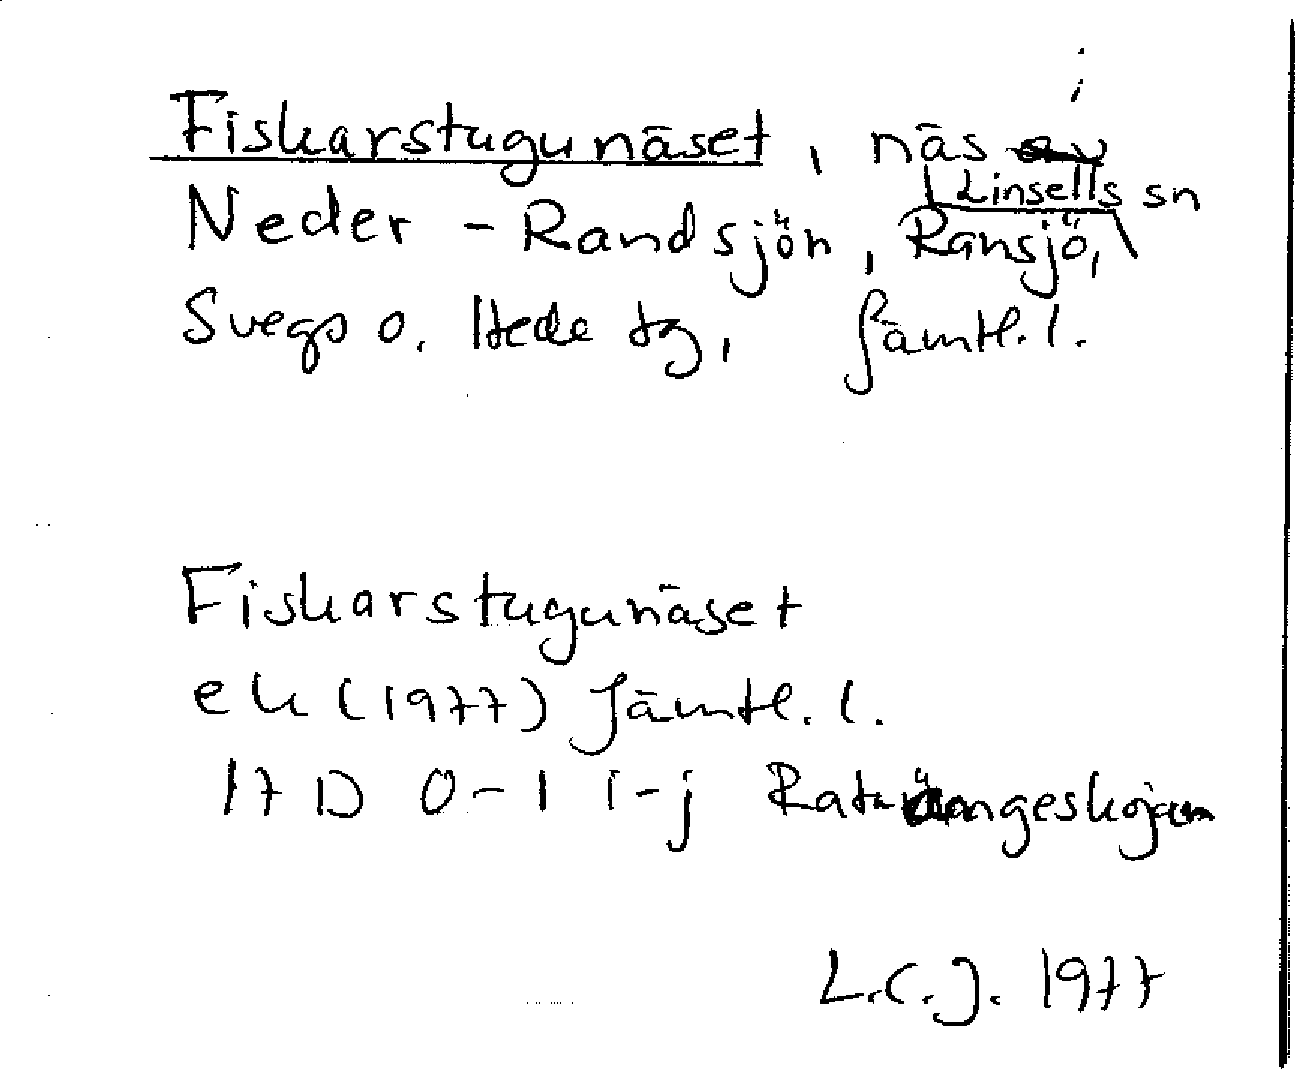 Fiskarstugunäset, näs i
Linsells sn
Neder-Randsjön, Ransjö,
Svegs o. Hede tg, Jämtl. l.
Fiskarstugunäset
ek (1977) Jämtl. l.
17 D 0-1 i-j
L.C.J. 1977